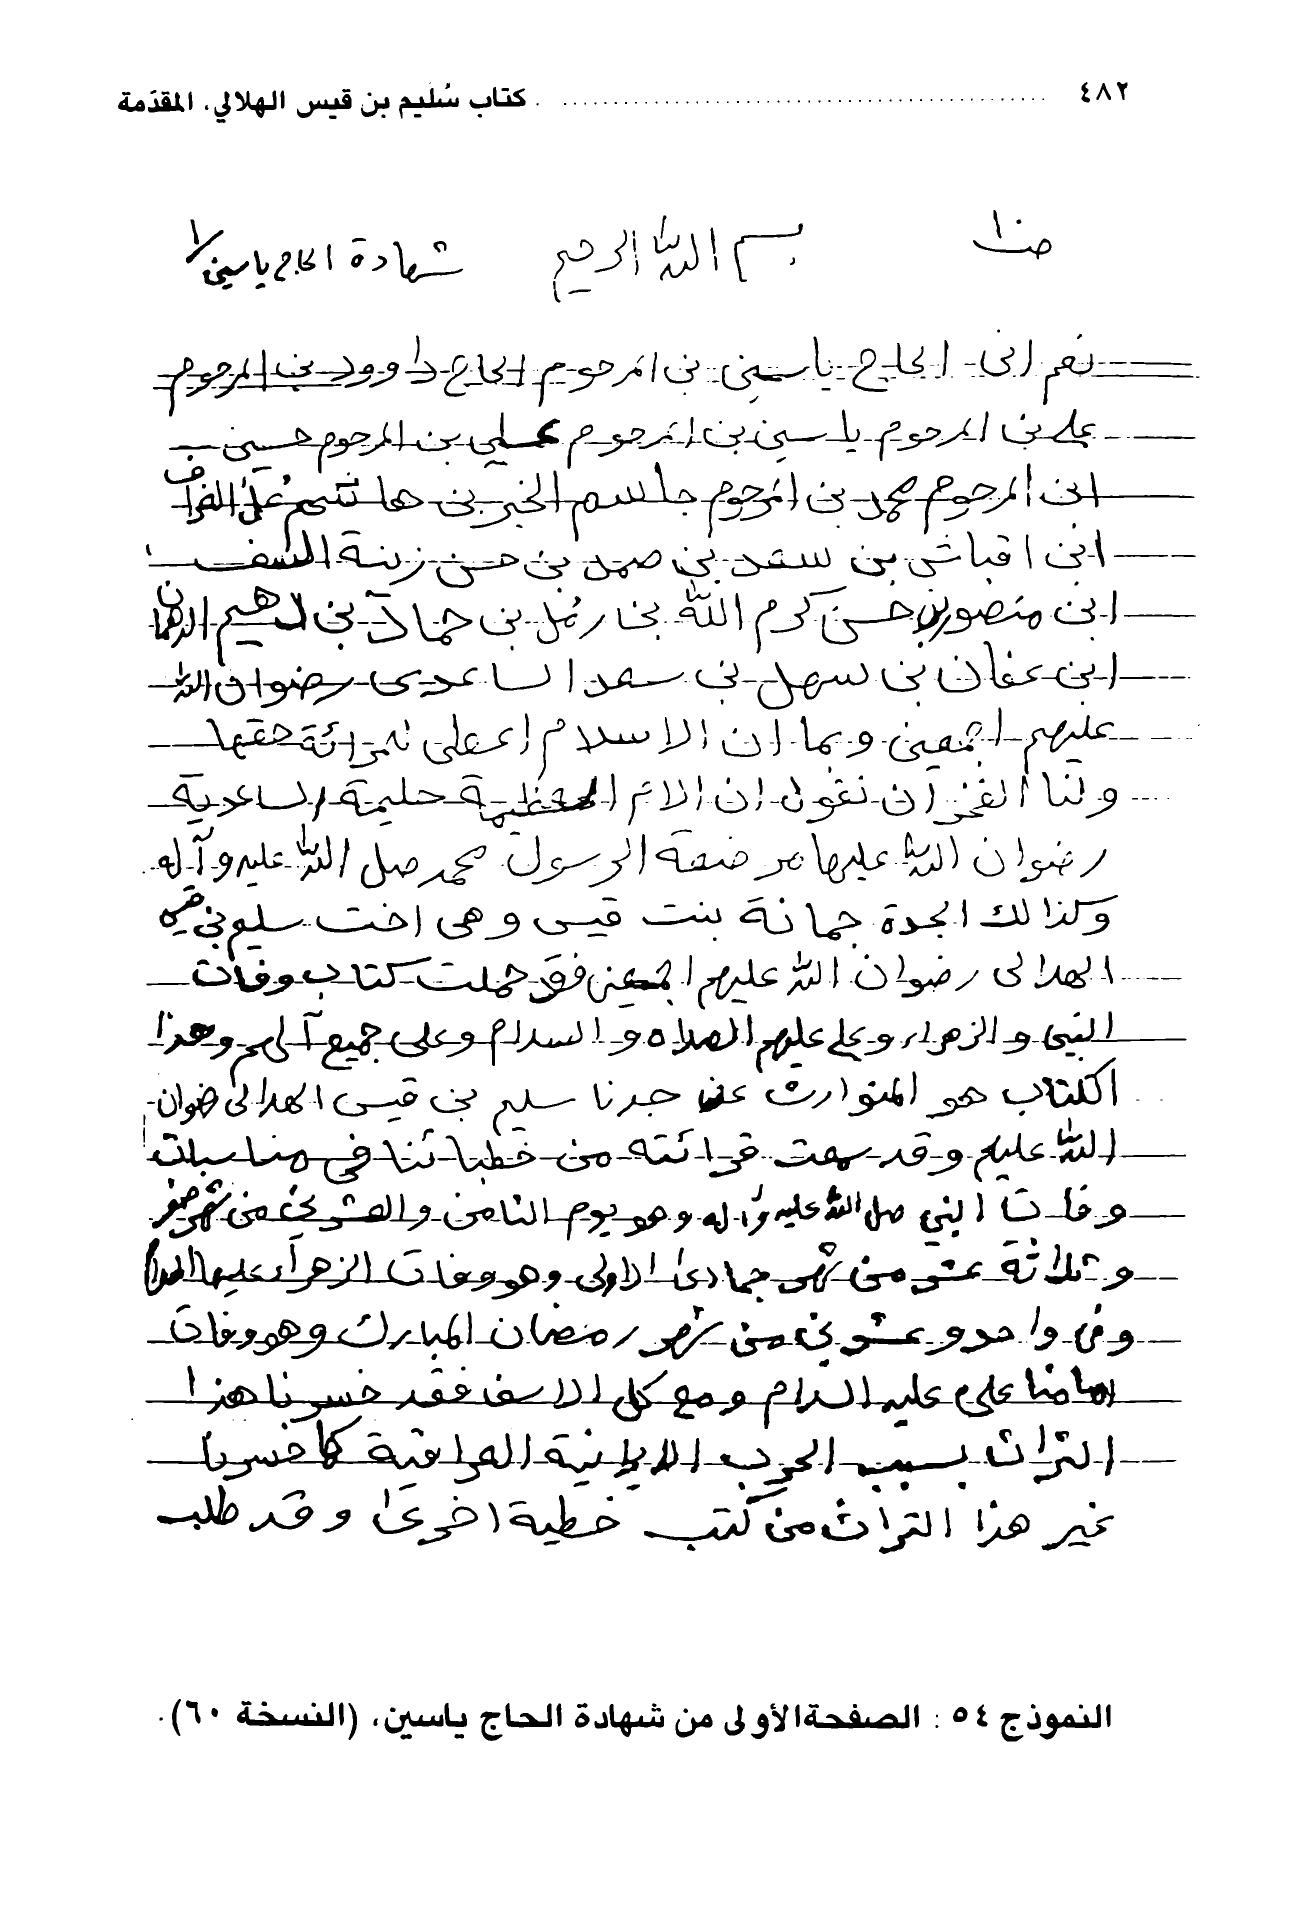 ٤٨٢ كتاب سُليم بن قيس الهلالي، المقدّمة
بسم الله الرحيم شهادة الحاج ياسين
نعم انى الحاج ياسين بن المرحوم الحاج داوود بن المرحوم
علي بن المرحوم ياسين بن المرحوم علي بن المرحوم حسين
ابن المرحوم محمد بن المرحوم جاسم الخير بن هاشم
ابن بن سعد بن حمد بن حسن زينة
ابن منصور بن حسن كرم الله بن حماد بن
ابن عفان بن سهل بن سعد الساعدي رضوان الله
عليهم اجمعين وبما ان الاسلام اعطى للمرأة حقها
ولنا الفخر ان نقول ان الام العظيمة حليمة الساعدية
رضوان الله عليها مرضعة الرسول محمد صل الله عليه وآله
وكذالك الجدة جمانة بنت قيس وهى اخت سليم بن قيس
الهلالى رضوان الله عليهم اجمعين فقد حملت كتاب وفات
النبي والزهراء وعلي عليهم الصلاه والسلام وعلى جميع آلهم وهذا
الكتاب هو المتوارث عن جدنا سليم بن قيس الهلالى رضوان
الله عليهم وقد سمعت قرائته من خطبائنا في مناسبات
وفات النبي صل الله عليه وآله وهو يوم الثامن والعشرين من شهر صفر
وثلاثة عشر من شهر جمادى الاولى وهو وفات الزهراء عليها السلام
وفي واحد وعشرين من شهر رمضان المبارك وهو وفات
امامنا علي عليه السلام ومع كل الاسف فقد خسرنا هذا
التراث بسبب الحرب الايرانية العراقية كما خسرنا
غير هذا التراث من كتب خطية اخرى وقد طلب
النموذج ٥٤ : الصفحة الأولى من شهادة الحاج ياسين، (النسخة ٦٠).